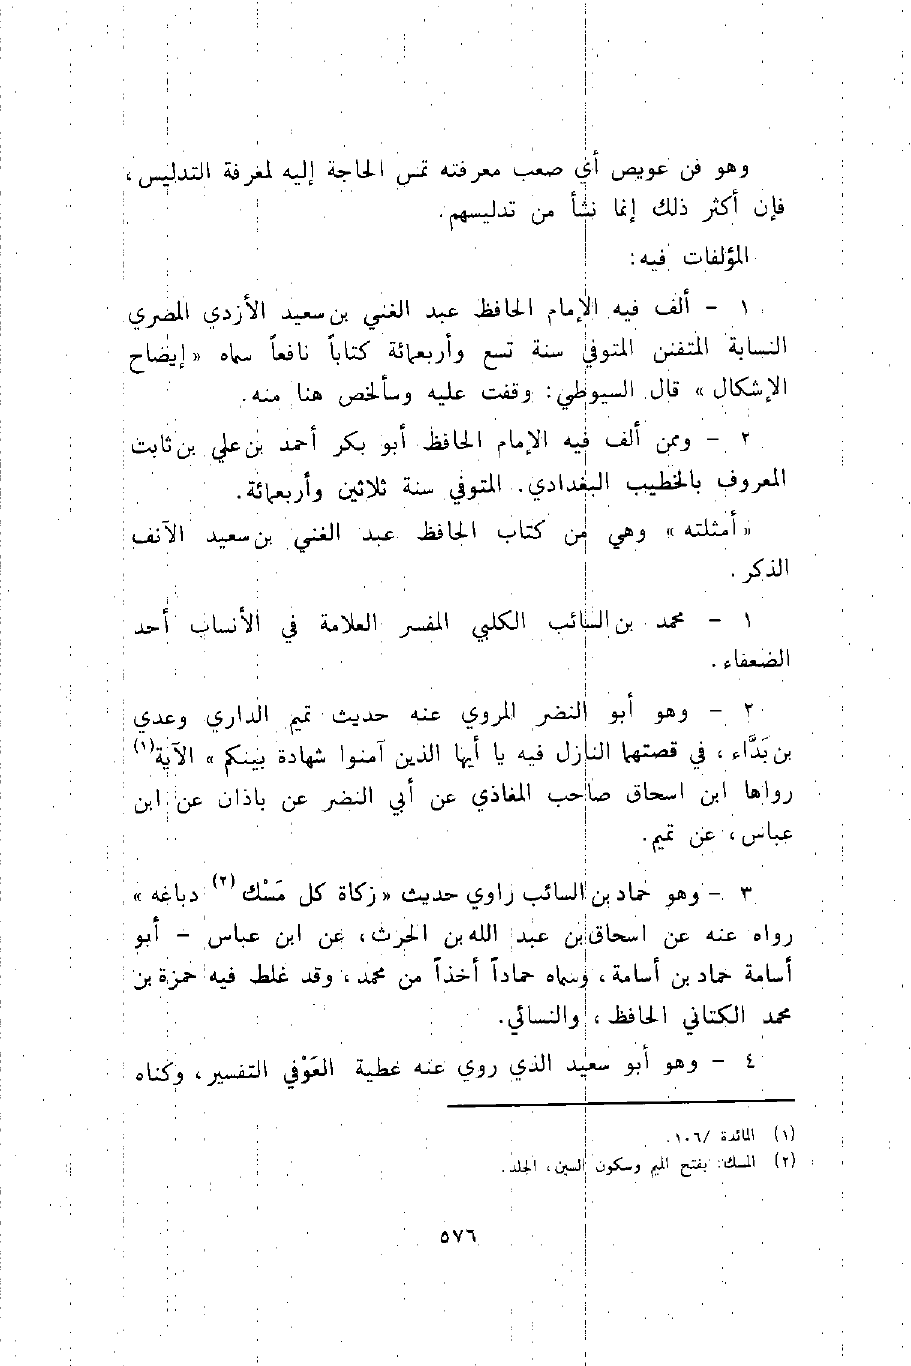 وهو فن عويص أي صعب معرفته تمس الحاجة إليه لمغرفة التدليس،
فإن أكثر ذلك إنما نشأ من تدليسهم.
المؤلفات فيه:
١ - ألف فيه الإمام الحافظ عبد الغني بن سعيد الأزدي المصري
النسابة المتفنن المتوفي سنة تسع وأربعمائة كتاباً نافعاً سماه «إيضاح
الإشكال» قال السيوطي: وقفت عليه وسألخص هنا منه.
٢ - وممن ألف فيه الإمام الحافظ أبو بكر أحمد بن علي بن ثابت
المعروف بالخطيب البغدادي. المتوفي سنة ثلاثين وأربعمائة.
«أمثلته» وهي من كتاب الحافظ عبد الغني بن سعيد الآنف
الذكر.
١ - محمد بن السائب الكلبي المفسر العلامة في الأنساب أحد
الضعفاء.
٢ - وهو أبو النضر المروي عنه حديث تميم الداري وعدي
بن بَدَّاء، في قصتهما النازل فيه يا أيها الذين آمنوا شهادة بينكم» الآية(١)
رواها ابن اسحاق صاحب المغاذي عن أبي النضر عن باذان عن ابن
عباس، عن تميم.
٣ - وهو حماد بن السائب راوي حديث «زكاة كل مَسْك(٢) دباغه»
رواه عنه عن اسحاق بن عبد الله بن الحرث، عن ابن عباس - أبو
أسامة حماد بن أسامة، وسماه حماداً أخذاً من محمد، وقد غلط فيه حمزة بن
محمد الكتاني الحافظ، والنسائي.
٤ - وهو أبو سعيد الذي روي عنه عطية العَوْفي التفسير، وكناه
(١) المائدة /١٠٦.
(٢) المسك: بفتح الميم وسكون السين، الجلد.
٥٧٦